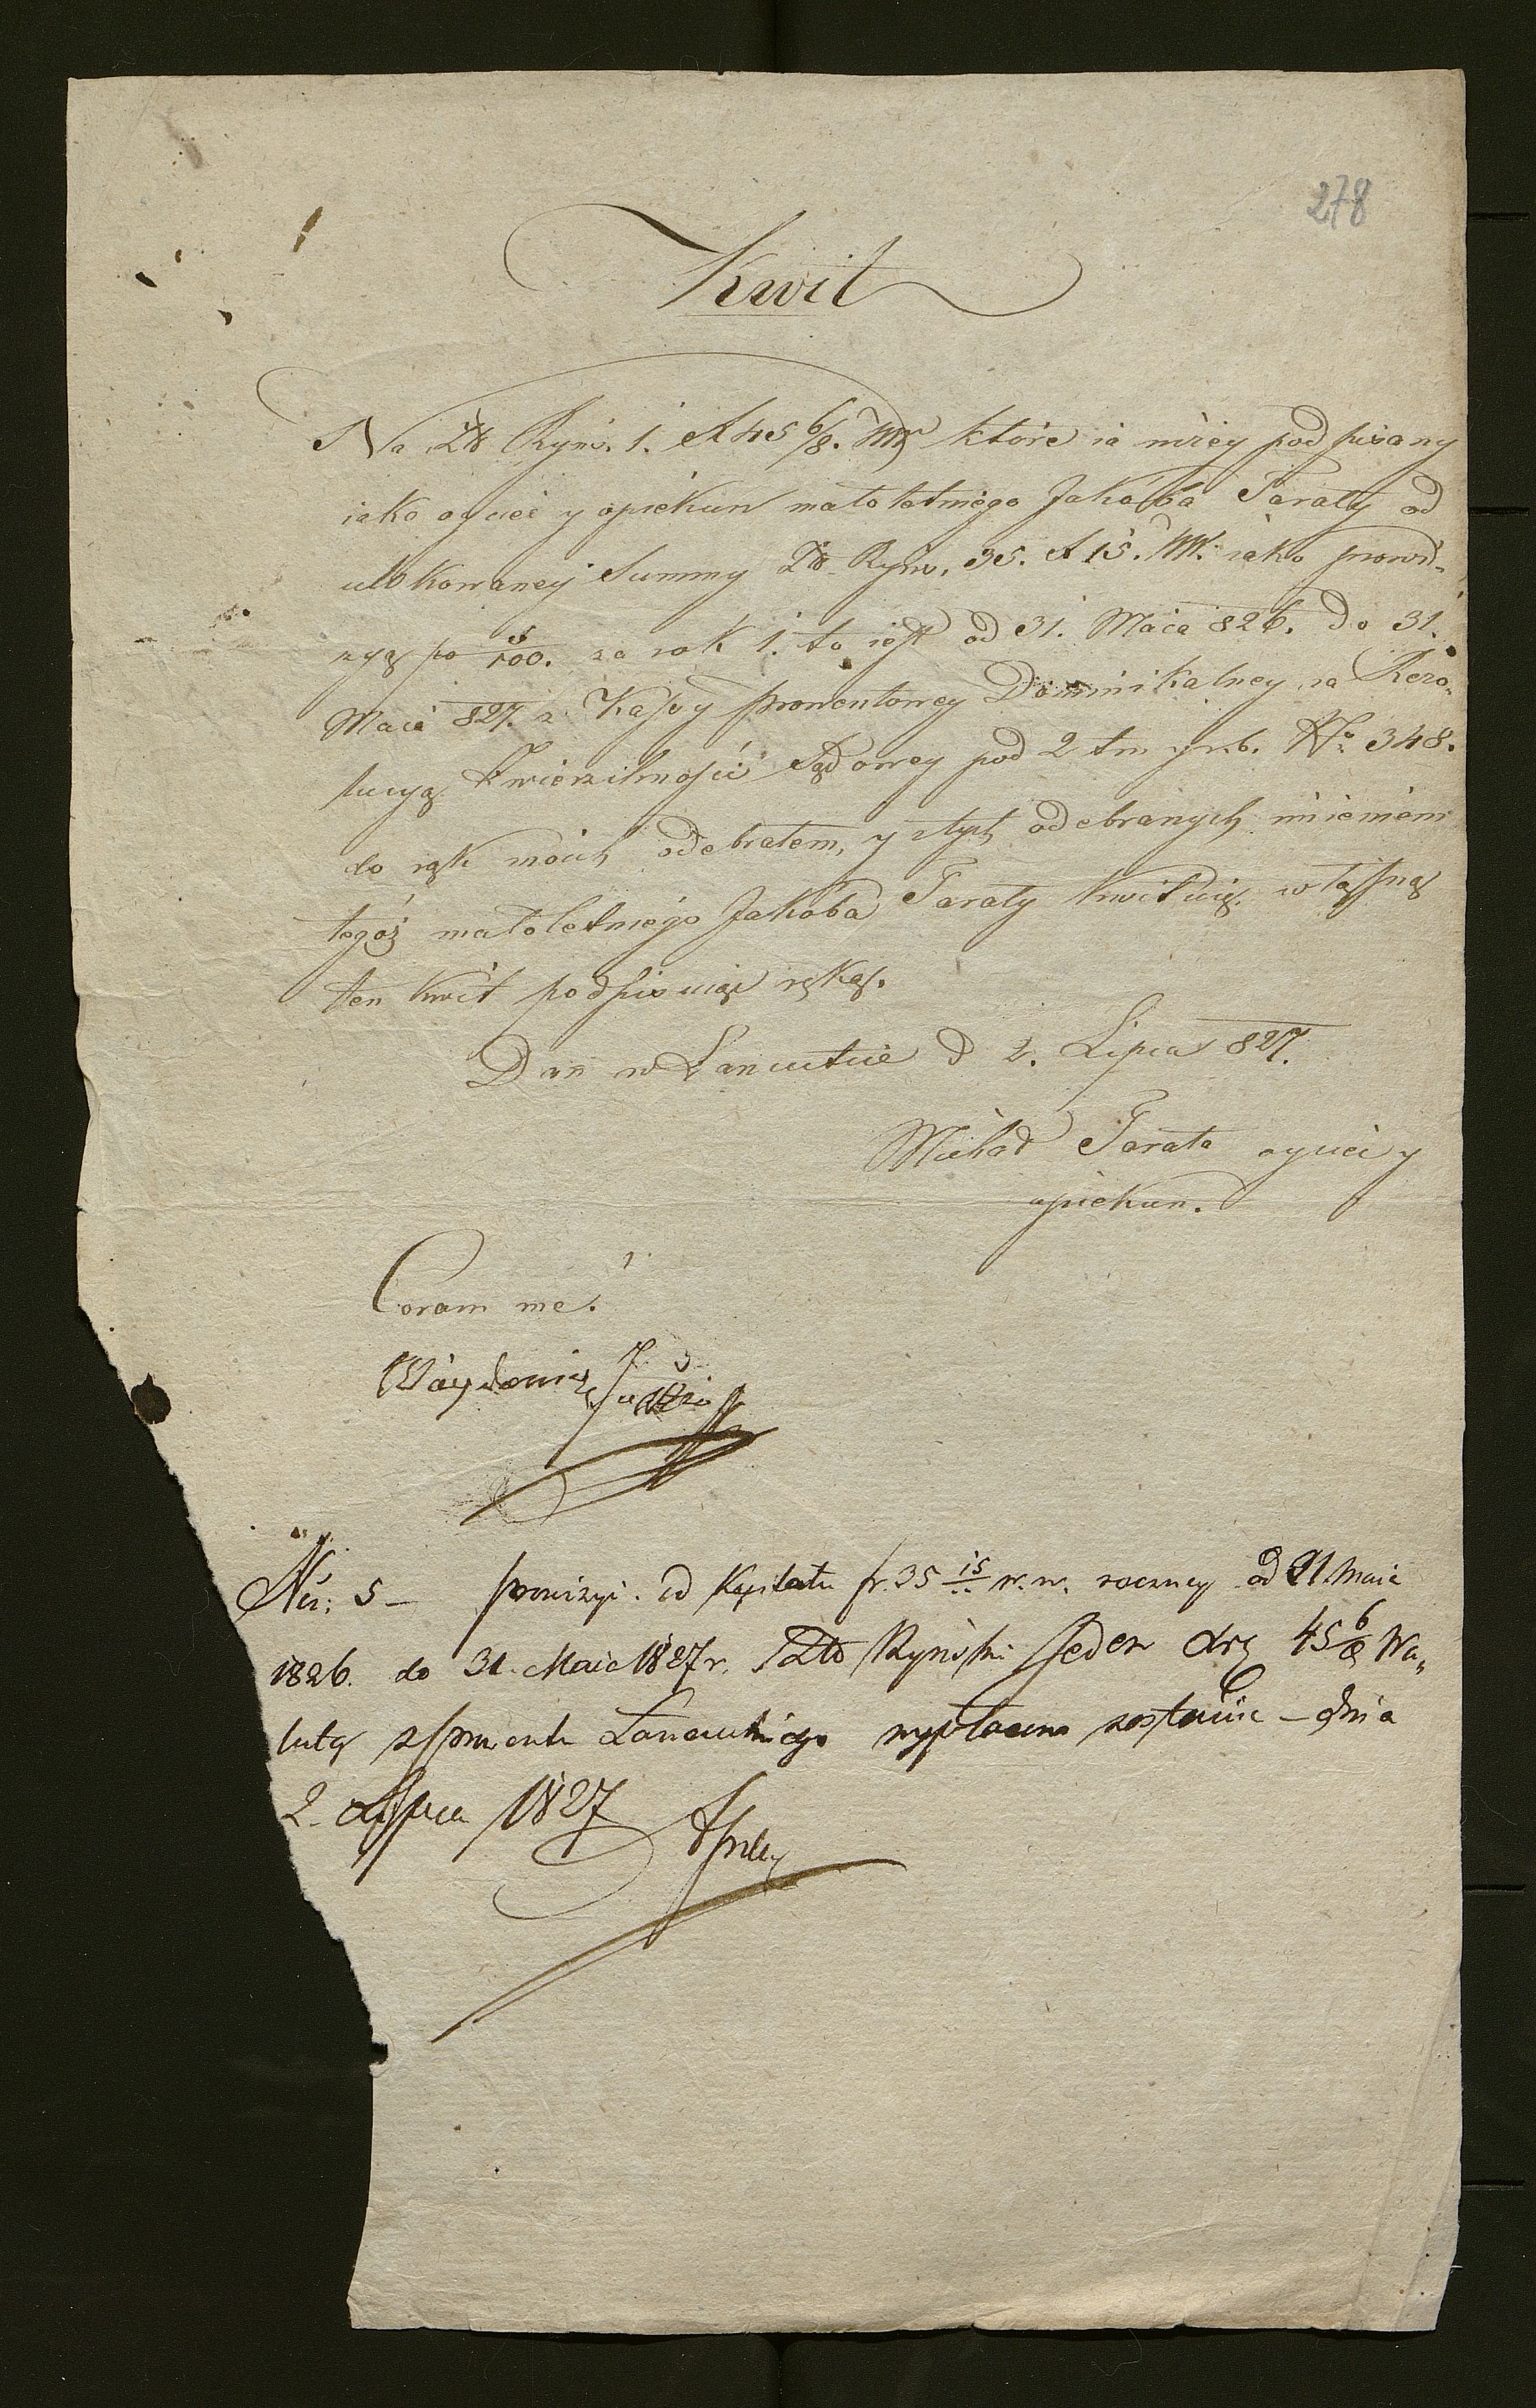 278
Kwit
Na Zł Ryns. 1. X 45 6/8. WW które ia niżey podpisany
iako oyciec y opiekun małoletniego Jakóba Tarały od
ulokowaney Summy Zł. Ryns. 35. X 15. WW. iako prowi-
zyą po 5/100. za rok 1. to iest od 31. Maia 826. do 31.
Maia 827. z Kassy prowentowey Dominikalney na Rezo-
lucyą Zwierzchności Sądowey pod 2 tm Nro 348.
do rąk moich odebrałem, y z tych odebranych imieniem
tegoż małoletniego Jakóba Tarały kwituię własną
ten kwit podpisuiąc ręką.
Dan w Lancucie d 2. Lipca 827.
Michał Tarała oyciec y
opiekun.
Coram me.
Nr: 5 - prowizyi od Kapitału fr. 35 15 w. w. roczney od 31 Maia
1826. do 31. Maia 1827 r. Zło Ryński Jeden Xrę 45 6/8 Wa-
lutą z prowentu Lancutskiego wypłacona zostanie - dnia
2. Lipca 1827